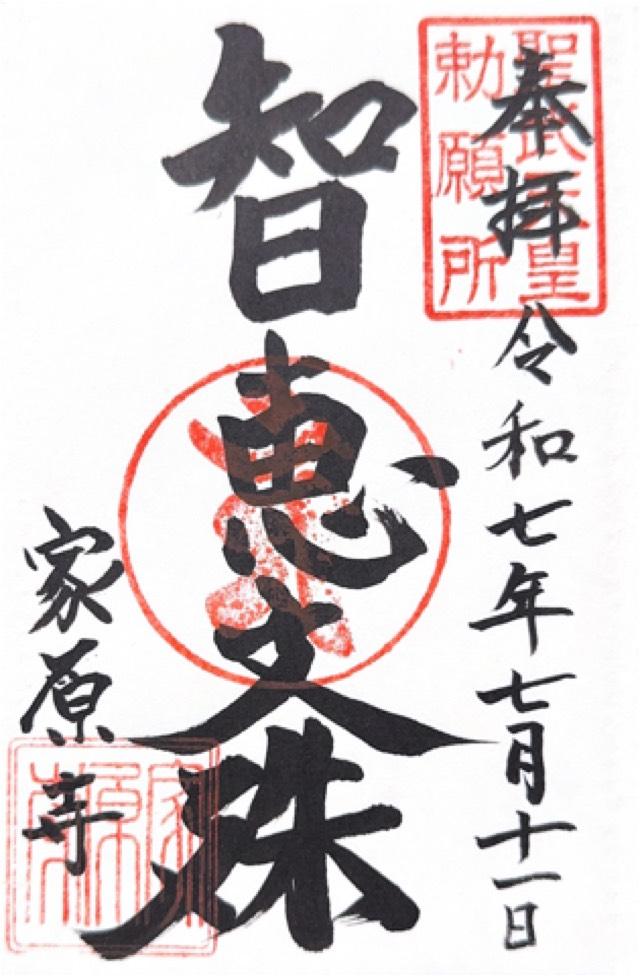 奉拝
令和七年七月十一日
聖武天皇
勅願所
智恵文殊
家原寺
家原寺